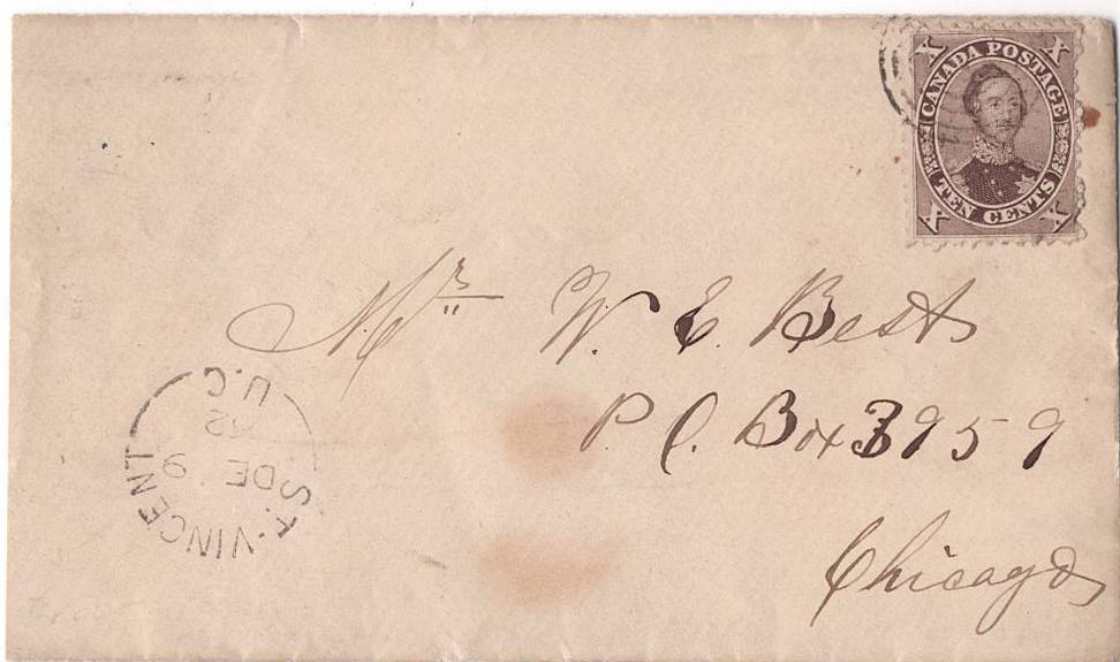 X X
CANADA POSTAGE
TEN CENTS
X X
Mr W. E. Best
P. O. Box 3959
Chicago
ST. VINCENT
DE 9
U.C